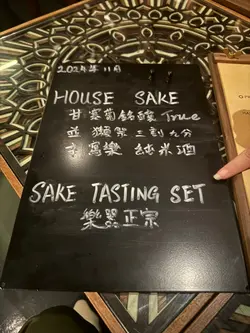 2024年11月
HOUSE SAKE
甘 寒菊銘醸 True
並 獺祭 三割九分
辛 萬樂 純米酒
SAKE TASTING SET
樂器正宗